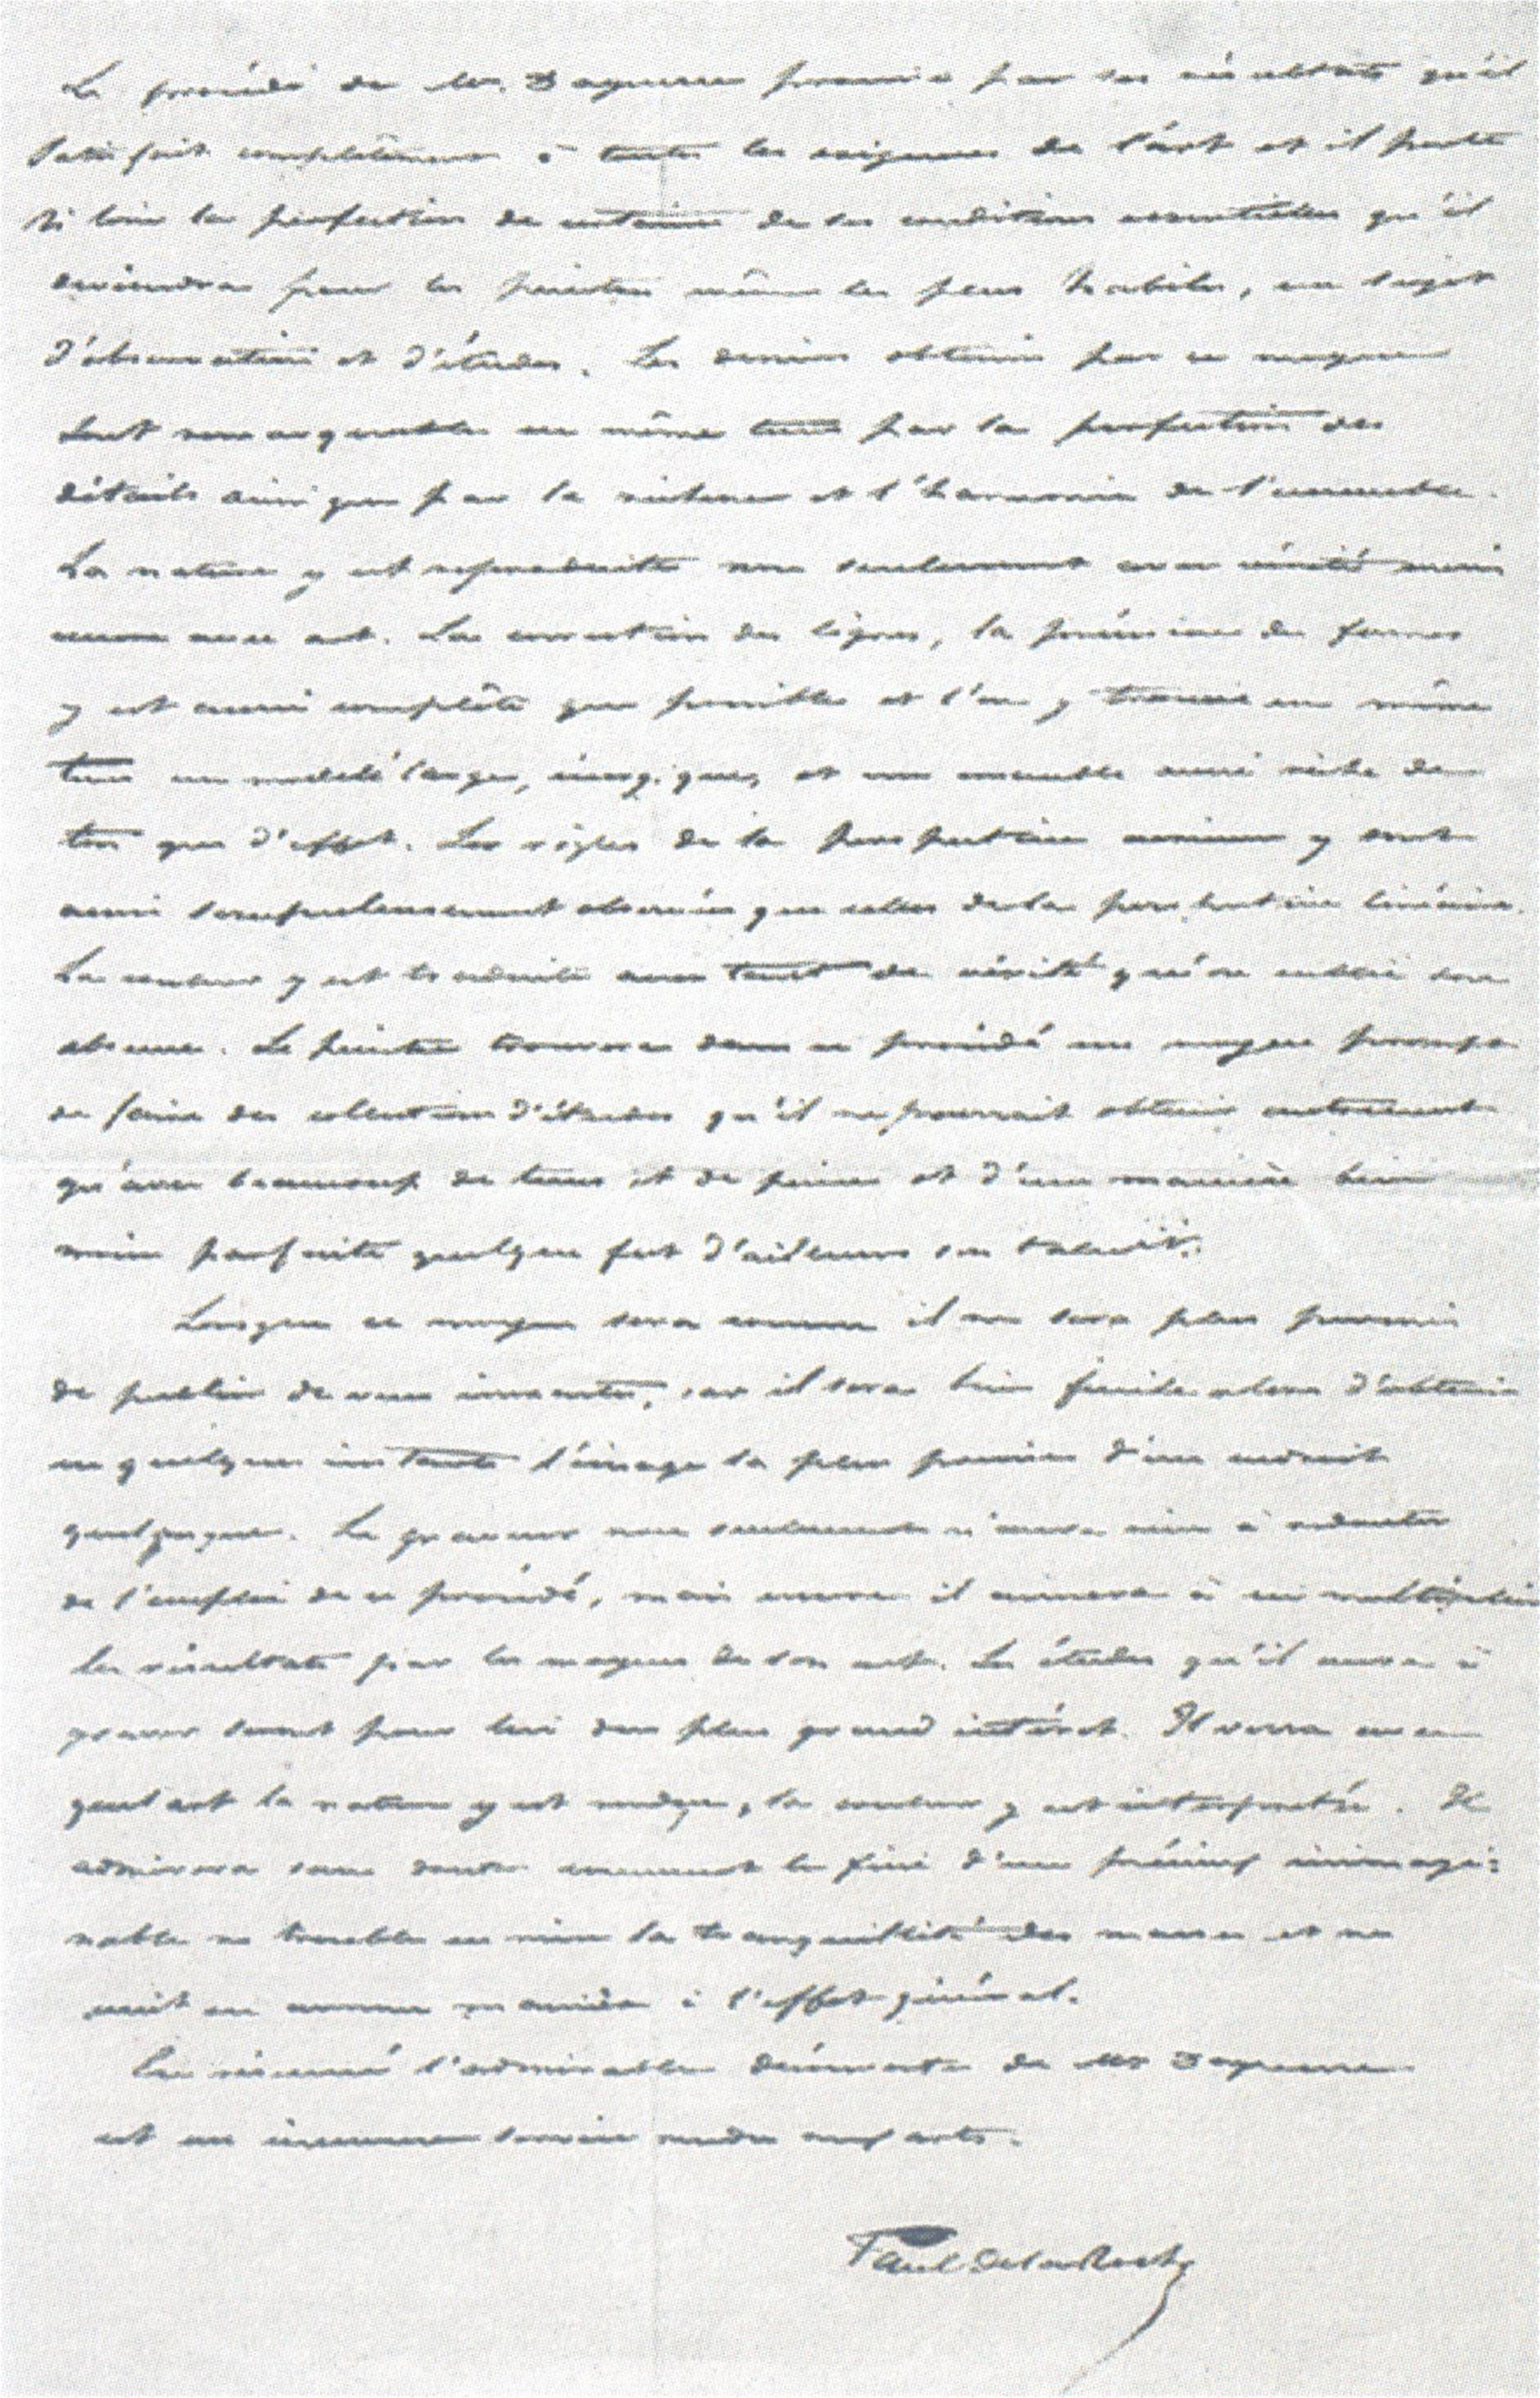 Le procédé de Mr. Daguerre prouve par ses résultats qu'il
satisfait complètement à toutes les exigences de l'art et il porte
si loin la perfection de certaines de ses conditions essentielles qu'il
deviendra pour les peintres même les plus habiles, un sujet
d'observation et d'études. Les dessins obtenus par ce moyen
sont remarquables en même tems par la perfection des
détails ainsi que par la richesse et l'harmonie de l'ensemble.
La nature y est reproduite non seulement avec vérité mais
encore avec art. La correction des lignes, la précision des formes
y est aussi complète que possible et l'on y trouve en même
tems un modelé large, énergique, et un ensemble aussi riche de
ton que d'effet. Les règles de la perspective aérienne y sont
aussi scrupuleusement observées que celles de la perspective linéaire.
La couleur y est traduite avec tant de vérité qu'on oublie son
absence. Le peintre trouvera dans ce procédé un moyen prompt
de faire des collections d'études qu'il ne pourrait obtenir autrement
qu'avec beaucoup de tems et de peine et d'une manière bien
moins parfaite quelque fut d'ailleurs son talent.
Lorsque ce moyen sera connu il ne sera plus permis
de publier de vues inexactes, car il sera bien facile alors d'obtenir
en quelques instants l'image la plus précise d'un endroit
quelconque. Le graveur non seulement n'aura rien à redouter
de l'emploi de ce procédé, mais encore il arrivera à en multiplier
les résultats par les moyens de son art. Les études qu'il aura à
graver seront pour lui du plus grand intérêt. Il verra avec
quel art la nature y est rendue, la couleur y est interprétée. Il
admirera sans doute comment le fini d'un précieux inimagi=
nable ne trouble en rien la tranquillité des masses et ne
nuit en aucune manière à l'effet général.
En résumé l'admirable découverte de Mr Daguerre
est un immense service rendu aux arts.
Paul Delaroche